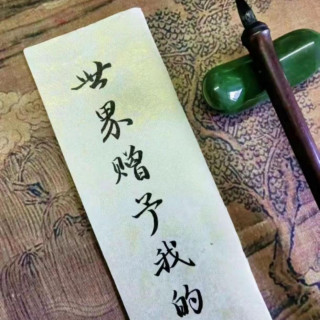 世界赠予我的